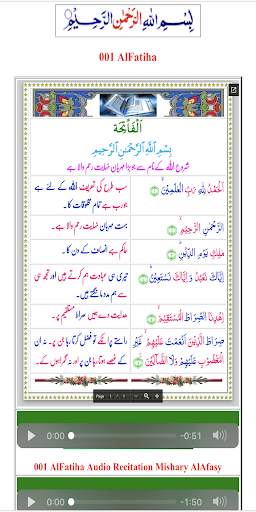 بِسْمِ اللهِ الرَّحْمٰنِ الرَّحِيْمِ
001 AlFatiha
اَلْفَاتِحَة
بِسْمِ اللهِ الرَّحْمٰنِ الرَّحِيْمِ
شروع اللہ کے نام سے جو بڑا مہربان نہایت رحم والا ہے
اَلْحَمْدُ لِلّٰهِ رَبِّ الْعٰلَمِيْنَ ۙ
سب طرح کی تعریف اللہ کے لئے ہے
جو رب ہے تمام مخلوقات کا۔
الرَّحْمٰنِ الرَّحِيْمِ ۙ
بہت مہربان نہایت رحم والا ہے۔
مٰلِكِ يَوْمِ الدِّيْنِ ؕ
حاکم ہے انصاف کے دن کا۔
اِيَّاكَ نَعْبُدُ وَ اِيَّاكَ نَسْتَعِيْنُ ؕ
تیری ہی عبادت ہم کرتے ہیں اور تجھ ہی
سے ہم مدد مانگتے ہیں۔
اِهْدِنَا الصِّرَاطَ الْمُسْتَقِيْمَ ۙ
ھدایت دے ہمیں صراط مستقیم پر۔
صِرَاطَ الَّذِيْنَ اَنْعَمْتَ عَلَيْهِمْ ۙ غَيْرِ
الْمَغْضُوْبِ عَلَيْهِمْ وَلَا الضَّآلِّيْنَ
راستے پر انکے تو فضل کرتا رہا جن پر۔ نہ ان
کے غصے ہوتا رہا جن پر اور نہ گمراہوں کے۔
Page 1 / 1
0:00 -0:51
001 AlFatiha Audio Recitation Mishary AlAfasy
0:00 -1:50